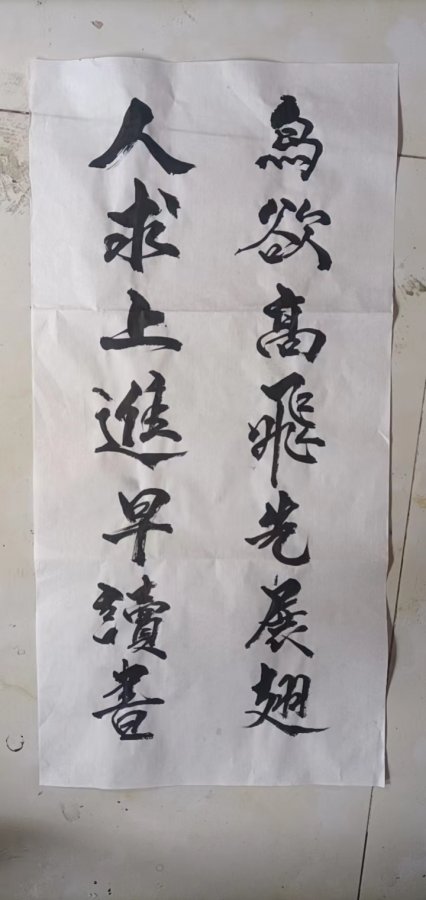 鳥欲高飛先展翅
人求上進早讀書